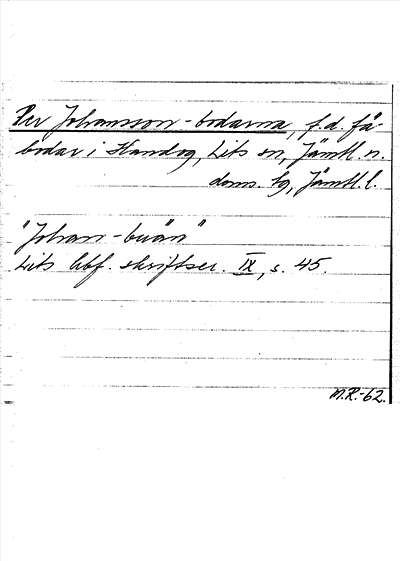 Per Johansson-bodarna, f.d. fä-
bodar i Handog, Lits sn, Jämtl. n.
doms. sg, Jämtl. l.
"Johan-buan"
Lits hbf. skriftser. IX, s. 45.
M.R.-62.